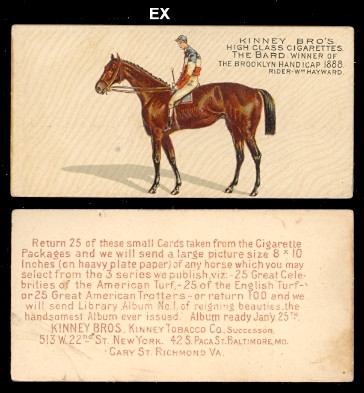 EX
KINNEY BRO'S
HIGH CLASS CIGARETTES.
THE BARD WINNER OF
THE BROOKLYN HANDICAP 1888.
RIDER-WM HAYWARD.
Return 25 of these small Cards taken from the Cigarette
Packages and we will send a large picture size 8 x 10
inches (on heavy plate paper) of any horse which you may
select from the 3 series we publish, viz:-25 Great Cele-
brities of the American Turf,-25 of the English Turf-
or 25 Great American Trotters - or return 100 and we
will send Library Album No. 1. of reigning beauties, the
handsomest Album ever issued. Album ready Jan'y 25TH.
KINNEY BROS. KINNEY TOBACCO CO., Successor.
513 W. 22ND ST. NEW YORK. 42 S. PACA ST. BALTIMORE, MD.
CARY ST. RICHMOND VA.